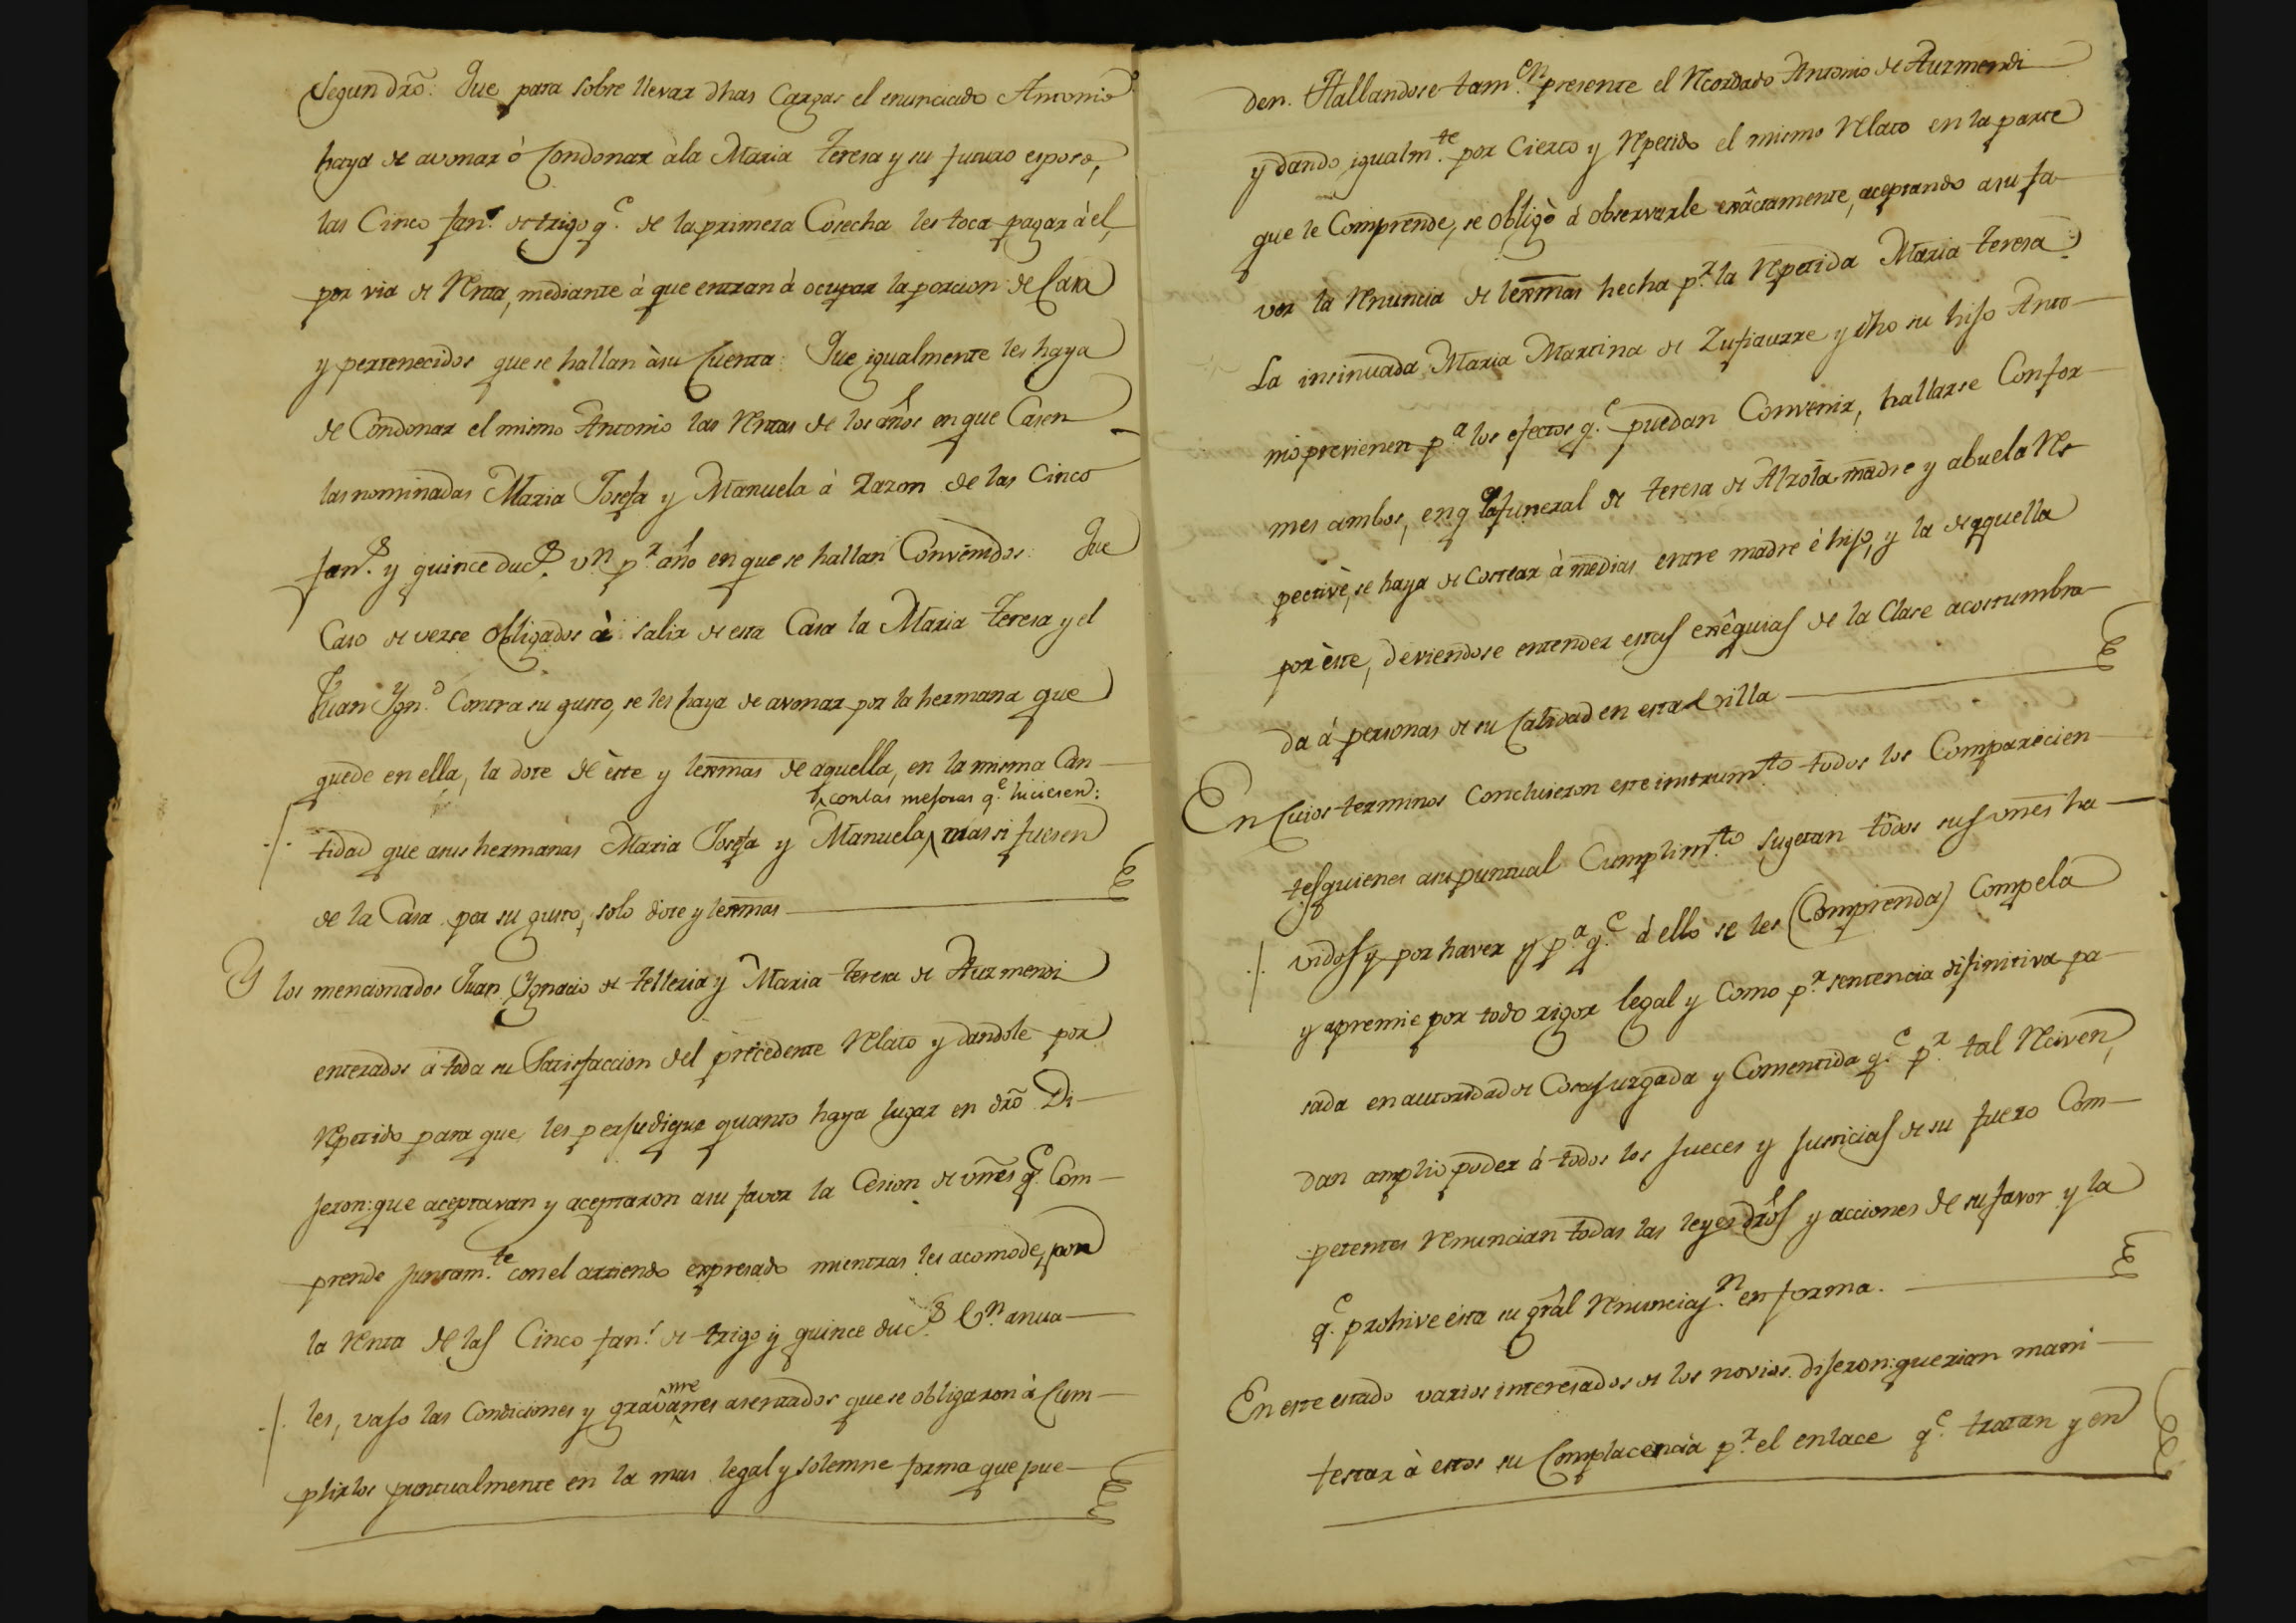 Segun dr̃o: Que para sobre llevar dhas Cargas el enunciado Antonio
haya de avonar ó Condonar à la Maria Teresa y su futuro esposo,
las Cinco fan.s de trigo q.e de la primera Cosecha les toca pagar à el,
por via de Renta, mediante à que entran à ocupar la porcion de Casa
y pertenecidos que se hallan à su Cuenta: Que igualmente les haya
de Condonar el mismo Antonio las Rentas de los años en que Casen
las nominadas Maria Josefa y Manuela à razon de las Cinco
fan.s y quince duc.s v.n p.r año en que se hallan Convenidos: Que
Caso de verse obligados à salir de esta Casa la Maria Teresa y el
Juan Ygn.o Contra su gusto, se les haya de avonar por la hermana que
quede en ella, la dote de èste y lexmas de aquella, en la misma Can-
con las mejoras q.e hiciesen:
tidad que a sus hermanas Maria Josefa y Manuela, mas si fuesen
de la Casa por su gusto, solo dote y lexmas
Y los mencionados Juan Ygnacio de Telleria y Maria Teresa de Aurmendi
enterados à toda su Satisfaccion del precedente Relato y dandole por
Repetido para que les perjudique quanto haya lugar en dr̃o Di-
jeron: que aceptavan y aceptaron a su favor la Cesion de vnes q.e Com-
prende juntam.te con el arriendo expresado mientras les acomode, por
la Renta de las Cinco fan.s de trigo y quince duc.s v.n anua-
les, vajo las Condiciones y gravamenes asentados que se obligaron à Cum-
plirlos puntualmente en la mas legal y solemne forma que pue-
den. Hallandose tam.en presente el Recordado Antonio de Aurmendi
y dando igualm.te por Cierto y Repetido el mismo Relato en la parte
que le Comprende, se obligò á observarle exâctamente, aceptando a su fa-
vor la Renuncia de lexmas hecha p.r la Repetida Maria Teresa:
La insinuada Maria Martina de Zufiaurre y dho su hijo Anto-
nio previenen p.a los efectos q.e puedan Convenir, hallarse Confor-
mes ambos, en q.e la funeral de Teresa de Alzola madre y abuela Res-
pectivè, se haya de Costear à medias entre madre è hijo, y la de aquella
por èste, deviendose entender estas exêquias de la Clase acostumbra-
da á personas de su Calidad en esta Villa
En Cuios terminos Concluieron este instrum.to todos los Comparecien-
tes, quienes a su puntual Cumplim.to sugetan todos sus vnes ha-
vidos y por haver y p.a q.e á ello se les (Comprenda) Compela
y apremie por todo rigor legal y Como p.r sentencia difinitiva pa-
sada en autoridad de Cosa juzgada y Comentida q.e p.r tal Reciven,
dan amplio poder á todos los jueces y justicias de su fuero Com-
petentes Renuncian todas las leyes dr̃os y acciones de su favor y la
q.e prohive ésta su grãl Renunciaz.n en forma.
En este estado varios interesados de los novios dijeron: querian mani-
festar à estos su Complacencia p.r el enlace q.e tratan y en